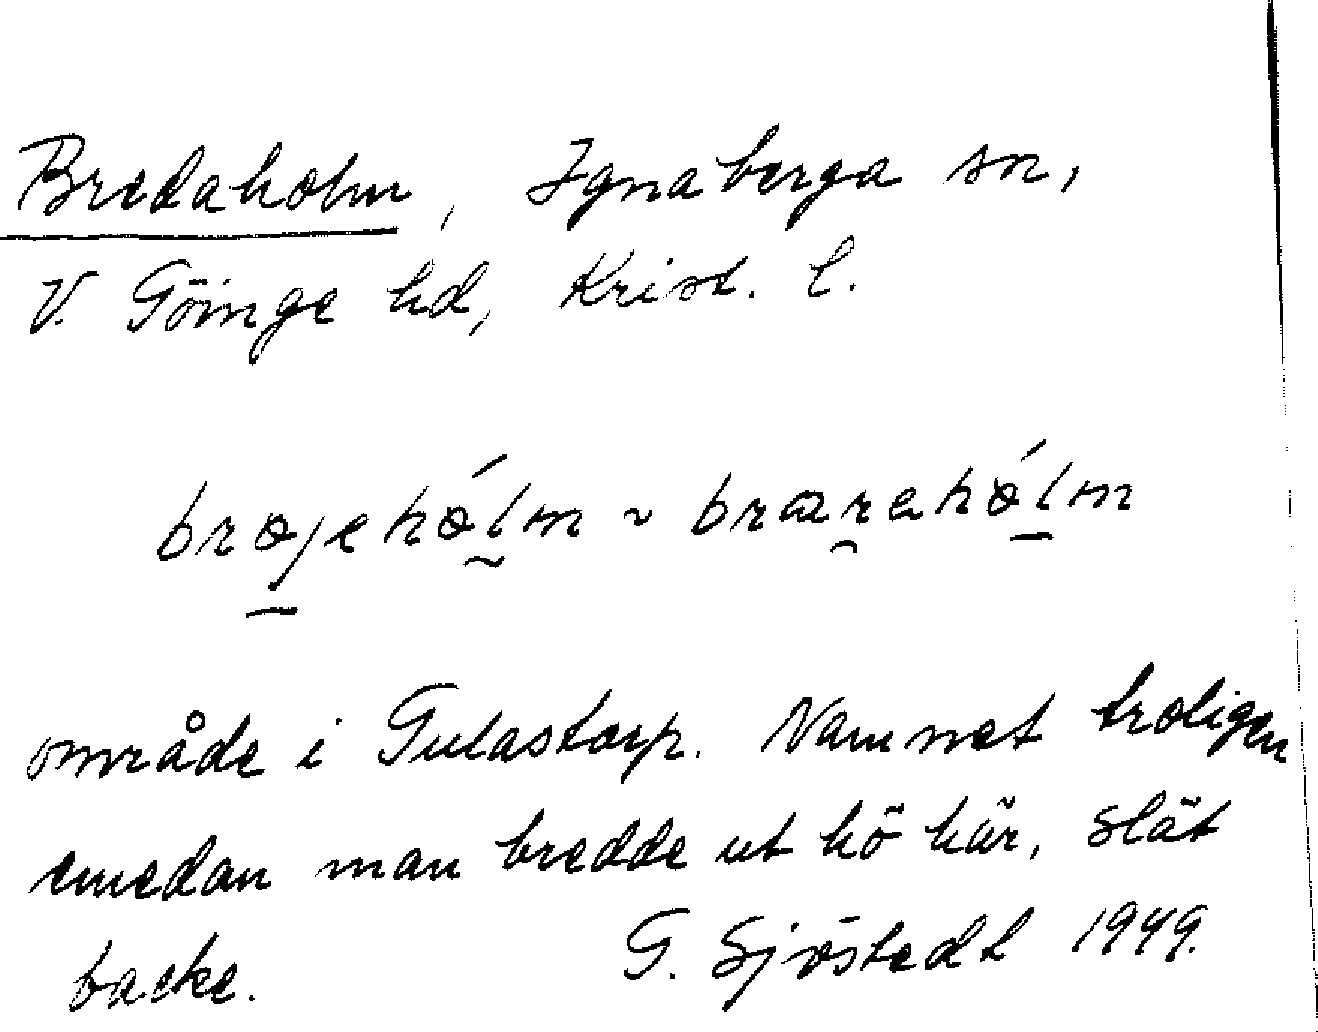 Bredaholm, Ignaberga sn,
V. Göinge hd, Krist. l.
område i Gulastorp. Namnet troligen
emedan man bredde ut hö här, slät
backe. G. Sjöstedt 1949.